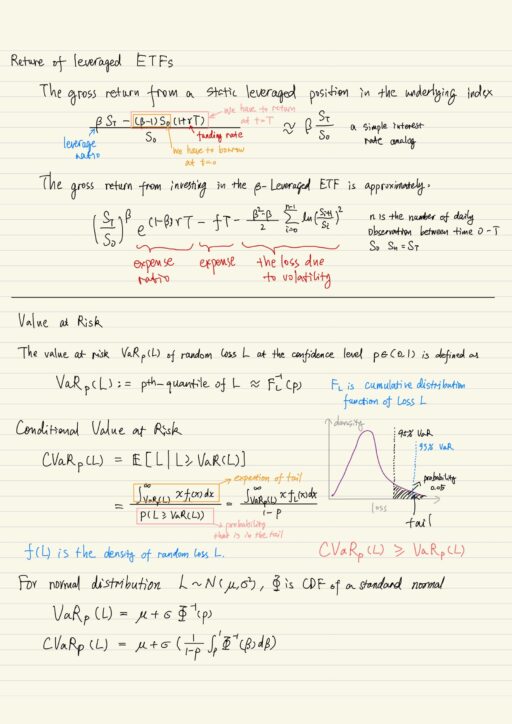 Reture of leveraged ETFs
The gross return from a static leveraged position in the underlying index
we have to return
at t=T
β S_T − (β−1) S_0 (1+rT) / S_0 ≈ β S_T / S_0
a simple interest
rate analog
leverage
ratio
funding rate
we have to borrow
at t=0
The gross return from investing in the β-Leveraged ETF is approximately.
(S_T / S_0)^β e^{(1-β)rT − fT − (β²−β)/2 Σ_{i=0}^{n-1} ln(S_{i+1}/S_i)²}
n is the number of daily
observation between time 0-T
S_0 S_n = S_T
expense
ratio
expense
the loss due
to volatility
Value at Risk
The value at risk VaR_p(L) of random loss L at the confidence level p∈(0,1) is defined as
VaR_p(L) := pth-quantile of L ≈ F_L^{-1}(p)
F_L is cumulative distribution
function of Loss L
Conditional Value at Risk
CVaR_p(L) = E[L | L ≥ VaR(L)]
= ∫_{VaR_p(L)}^∞ x f_L(x) dx / P(L ≥ VaR(L)) = ∫_{VaR_p(L)}^∞ x f_L(x) dx / 1−p
expection of tail
probability
that is in the tail
density
95% VaR
probability
0.05
loss
tail
f(L) is the density of random loss L.
CVaR_p(L) ≥ VaR_p(L)
For normal distribution L ~ N(μ,σ²), Φ is CDF of a standard normal
VaR_p(L) = μ + σ Φ^{-1}(p)
CVaR_p(L) = μ + σ (1/(1−p) ∫_p^1 Φ^{-1}(β) dβ)